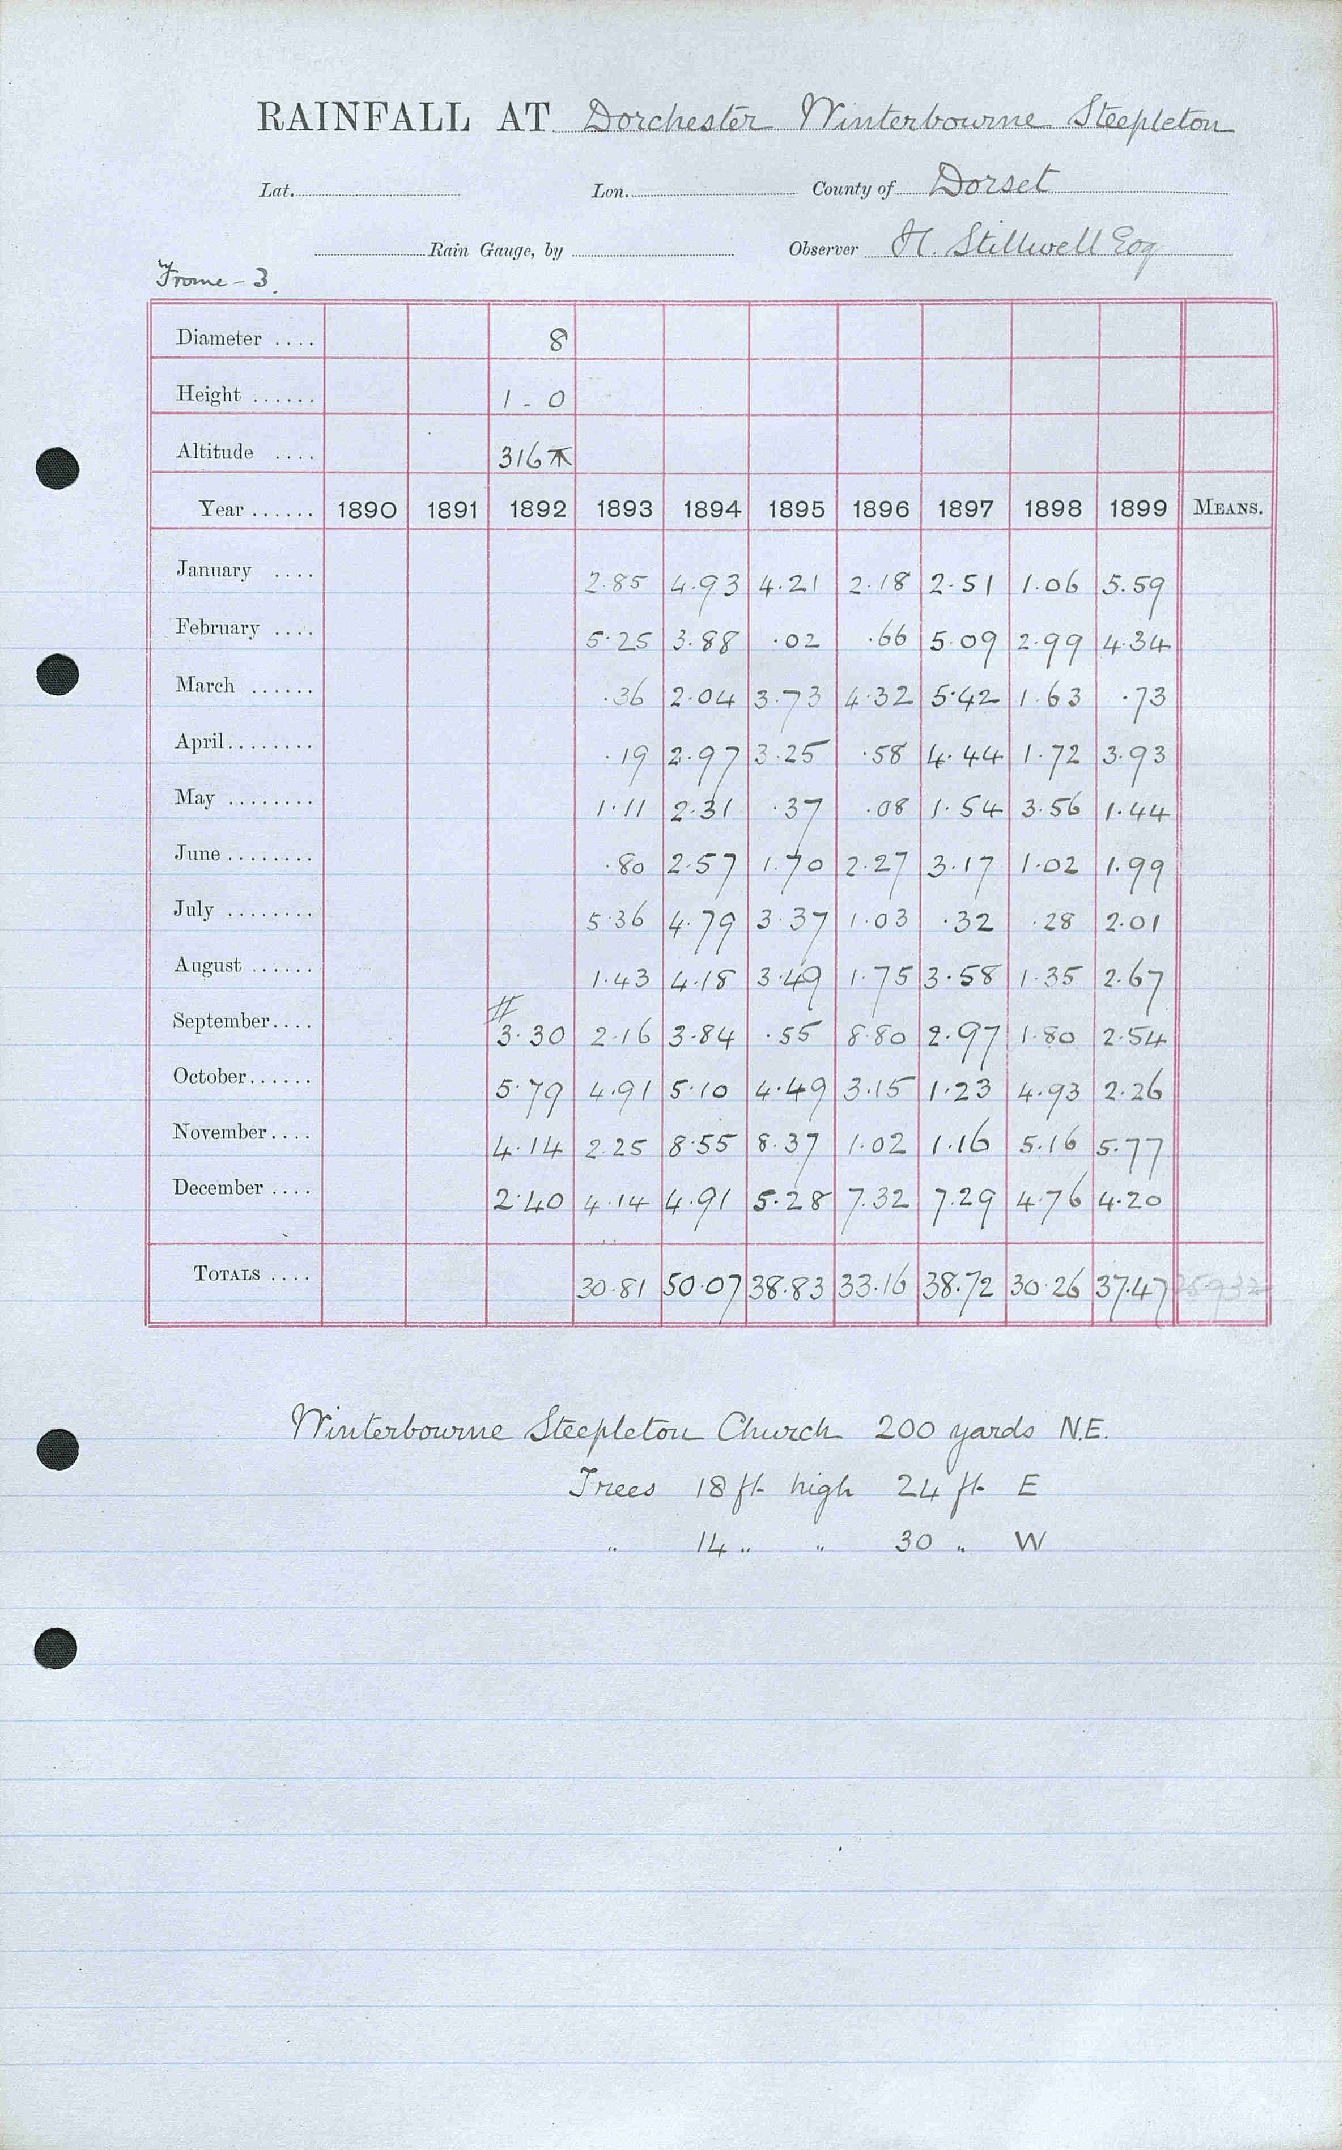 RAINFALL AT Dorchester Winterbourne Steepleton
Lat. Lon. County of Dorset
Rain Gauge, by Observer H. Stillwell Esq
Frome - 3.
Diameter .... 8
Height ...... 1 - 0
Altitude .... 316
Year ...... 1890 1891 1892 1893 1894 1895 1896 1897 1898 1899 MEANS.
January .... 2.85 4.93 4.21 2.18 2.51 1.06 5.59
February .... 5.25 3.88 .02 .66 5.09 2.99 4.34
March ...... .36 2.04 3.73 4.32 5.42 1.63 .73
April........ .19 2.97 3.25 .58 4.44 1.72 3.93
May ........ 1.11 2.31 .37 .08 1.54 3.56 1.44
June ........ .80 2.57 1.70 2.27 3.17 1.02 1.99
July ........ 5.36 4.79 3.37 1.03 .32 .28 2.01
August ...... 1.43 4.18 3.49 1.75 3.58 1.35 2.67
September.... # 3.30 2.16 3.84 .55 8.80 2.97 1.80 2.54
October...... 5.79 4.91 5.10 4.49 3.15 1.23 4.93 2.26
November.... 4.14 2.25 8.55 8.37 1.02 1.16 5.16 5.77
December .... 2.40 4.14 4.91 5.28 7.32 7.29 4.76 4.20
TOTALS .... 30.81 50.07 38.83 33.16 38.72 30.26 37.47
Winterbourne Steepleton Church 200 yards N.E.
Trees 18 ft high 24 ft E
" 14 " " 30 " W